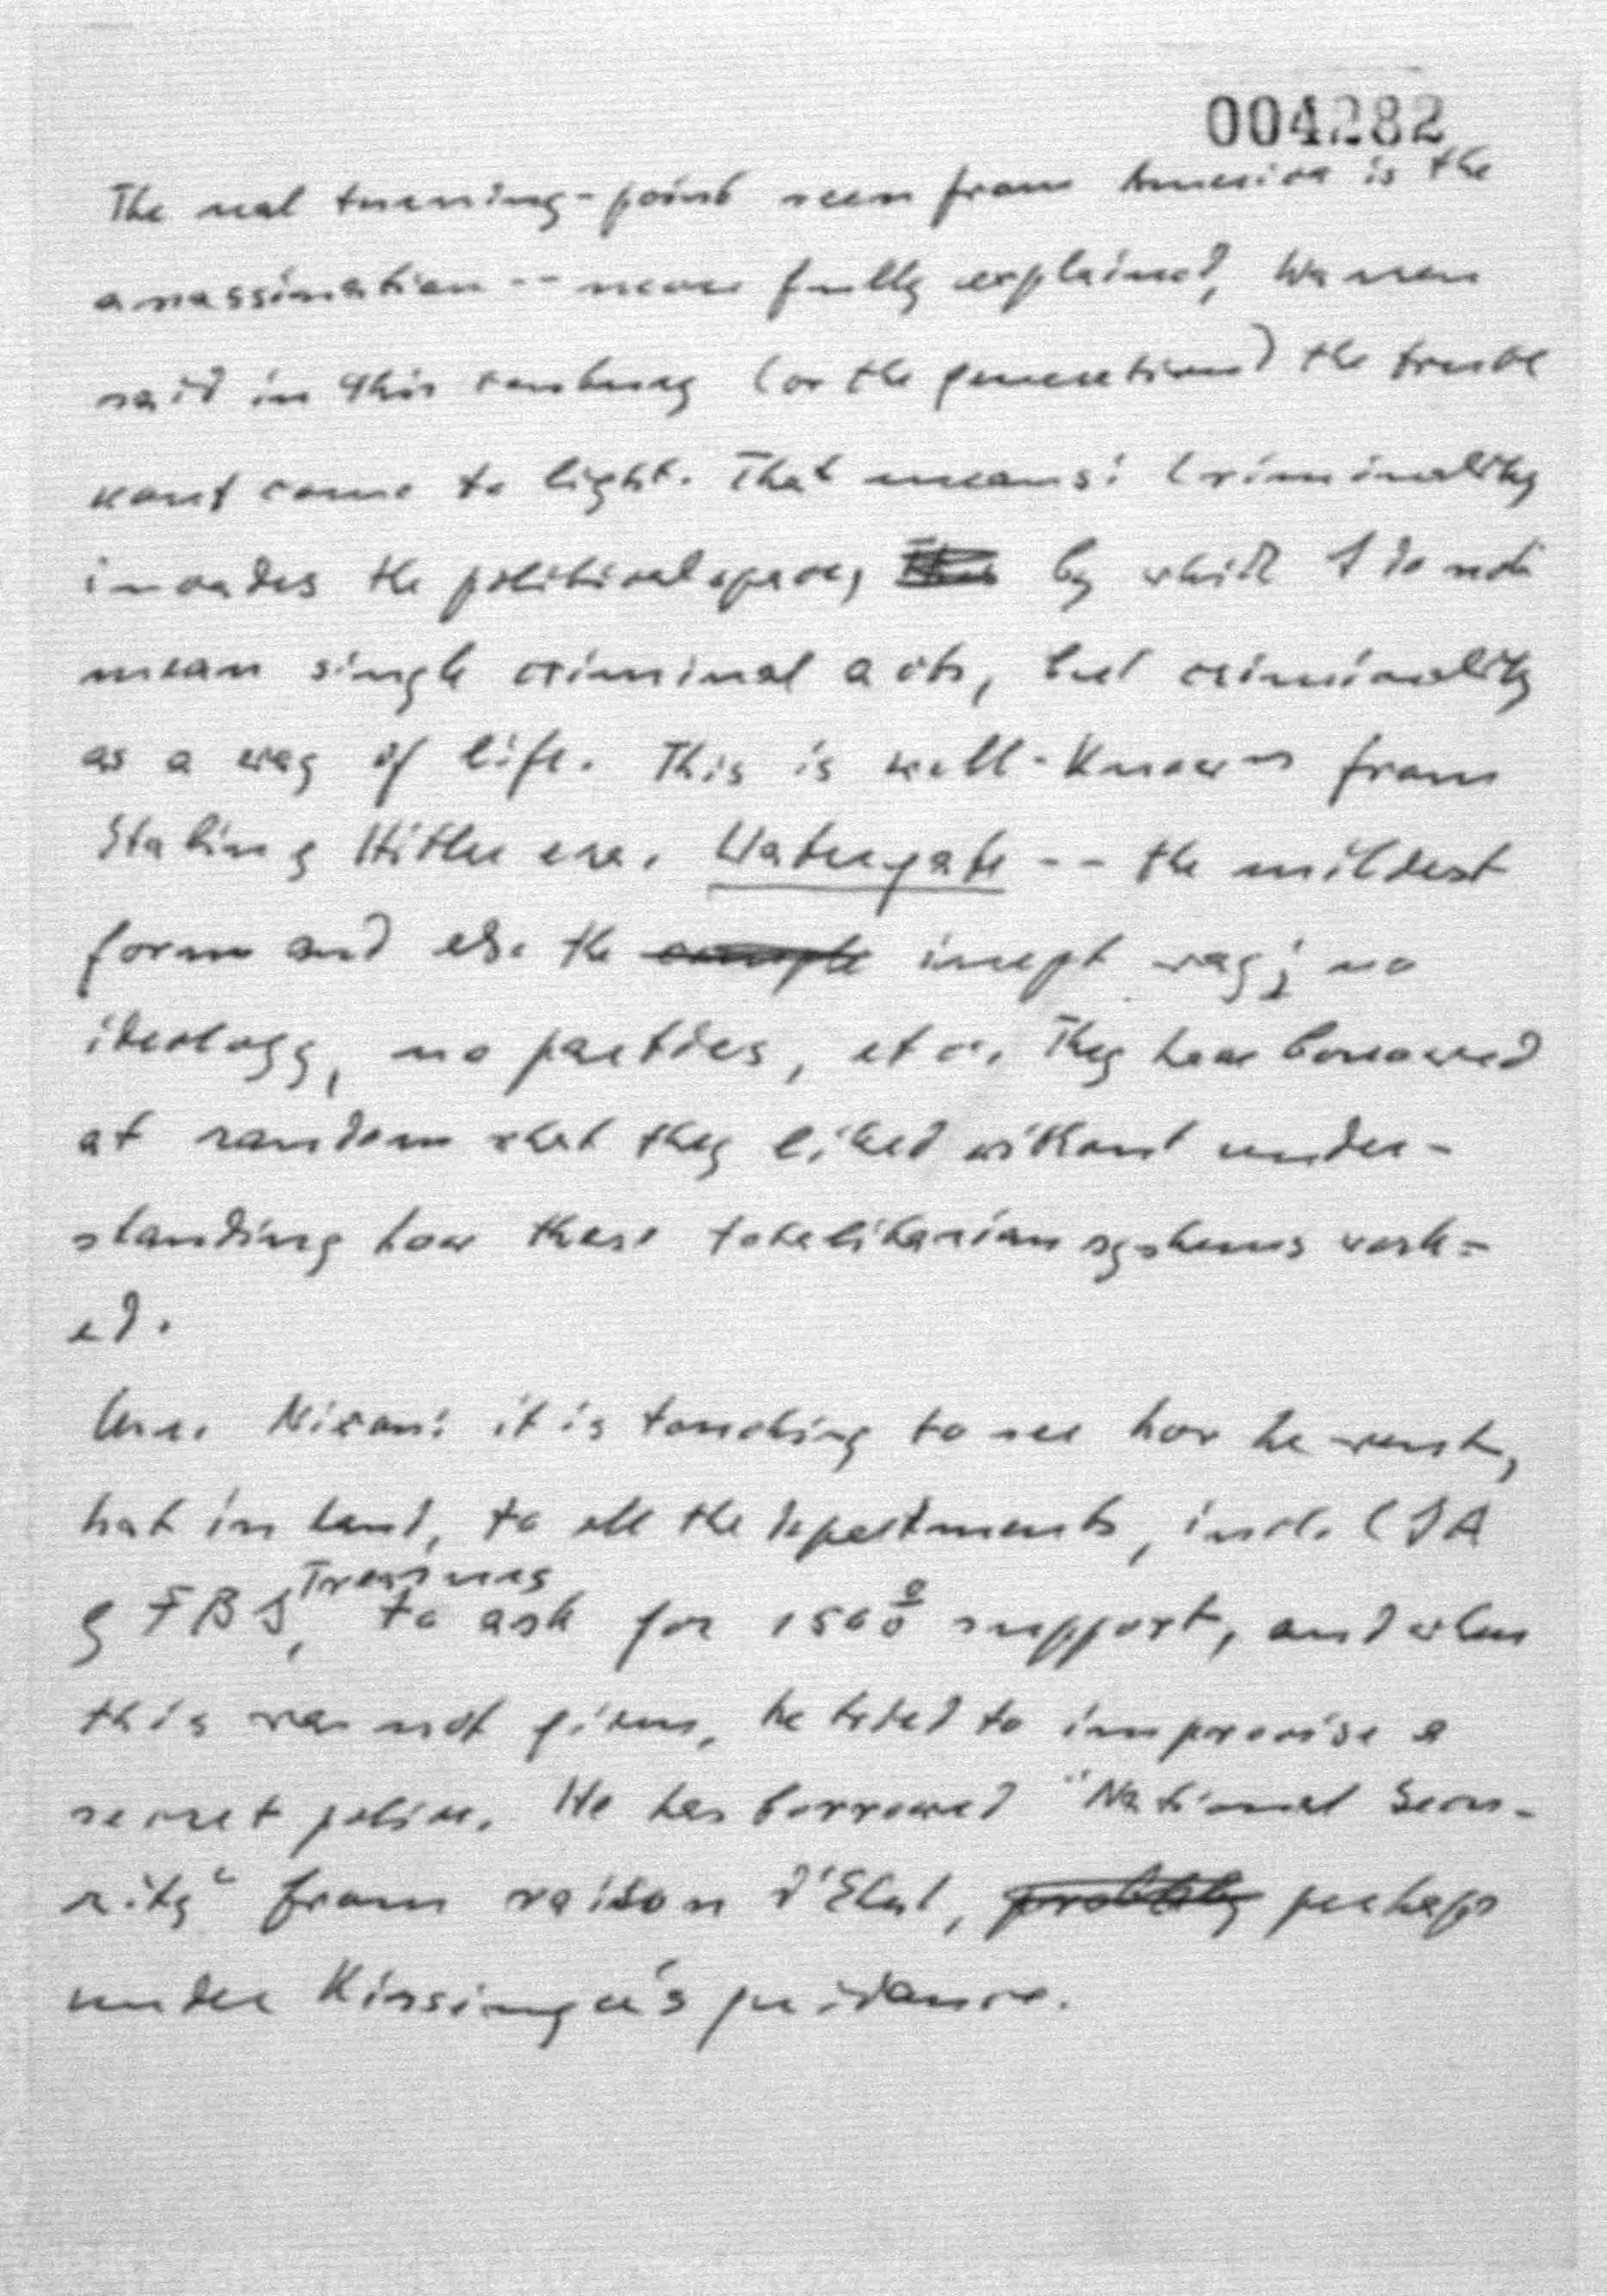 004282
The real turning-point seen from America is the
assassination -- never fully explained, Warren
said in this century (or the generation) the truth
cant come to light. That means: Criminality
invades the political space, by which I do not
mean single criminal acts, but criminality
as a way of life. This is well-known from
Stalin & Hitler era. Watergate -- the mildest
form and also the inept way; no
ideology, no parties, etc. They have borrowed
at random what they liked without under-
standing how these totalitarian systems work-
ed.
Nixon: it is touching to see how he went,
hat in hand, to all the departments, incl. CIA
& FBI, Treasury to ask for 150% support, and when
this was not given, he tried to improvise a
secret police. He has borrowed "National Secu-
rity" from raison d'Etat, probably perhaps
under Kissinger's guidance.